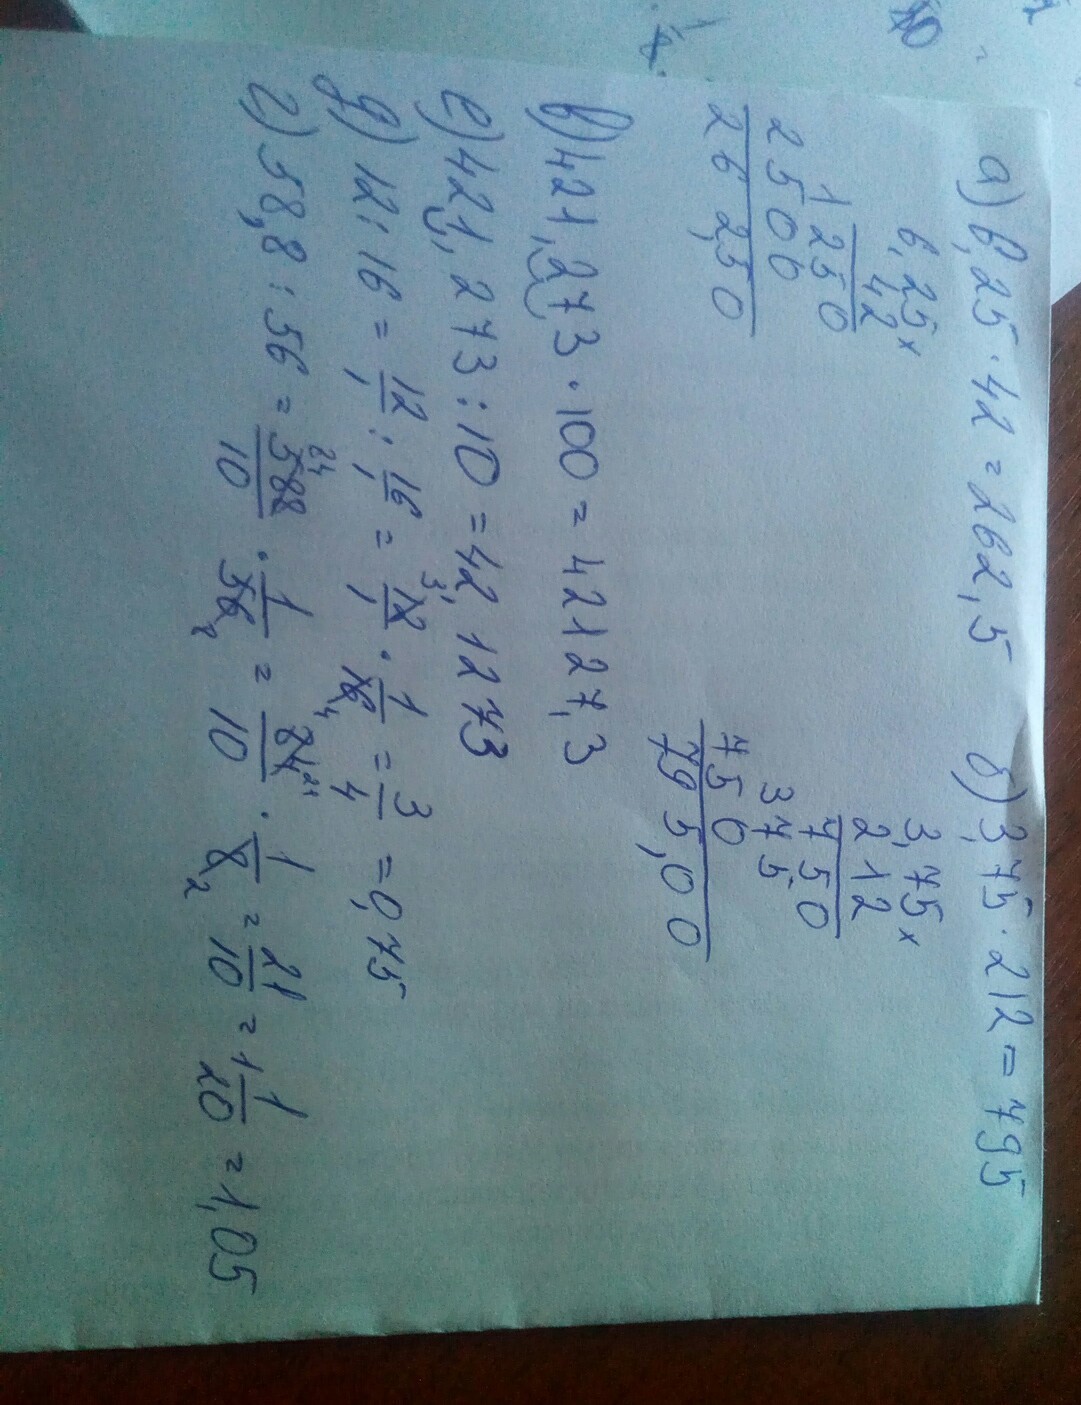 а) 6,25 · 42 = 262,5 б) 3,75 · 212 = 795
6,25 ×
42
1250
2500
262,50
3,75 ×
212
750
375
750
795,00
в) 421,273 · 100 = 42127,3
е) 421,273 : 10 = 42,1273
д) 12 : 16 = 12/1 : 16/1 = 12/1 · 1/16 = 3/4 = 0,75
г) 58,8 : 56 = 588/10 · 1/56 = 84/10 · 1/8 = 21/10 = 1 1/20 = 1,05